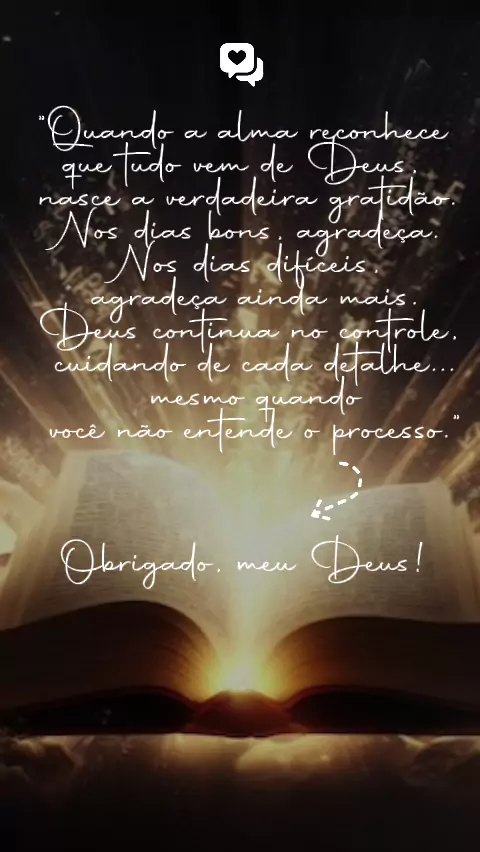 "Quando a alma reconhece
que tudo vem de Deus,
nasce a verdadeira gratidão.
Nos dias bons, agradeça.
Nos dias difíceis,
agradeça ainda mais.
Deus continua no controle,
cuidando de cada detalhe...
mesmo quando
você não entende o processo."
Obrigado, meu Deus!